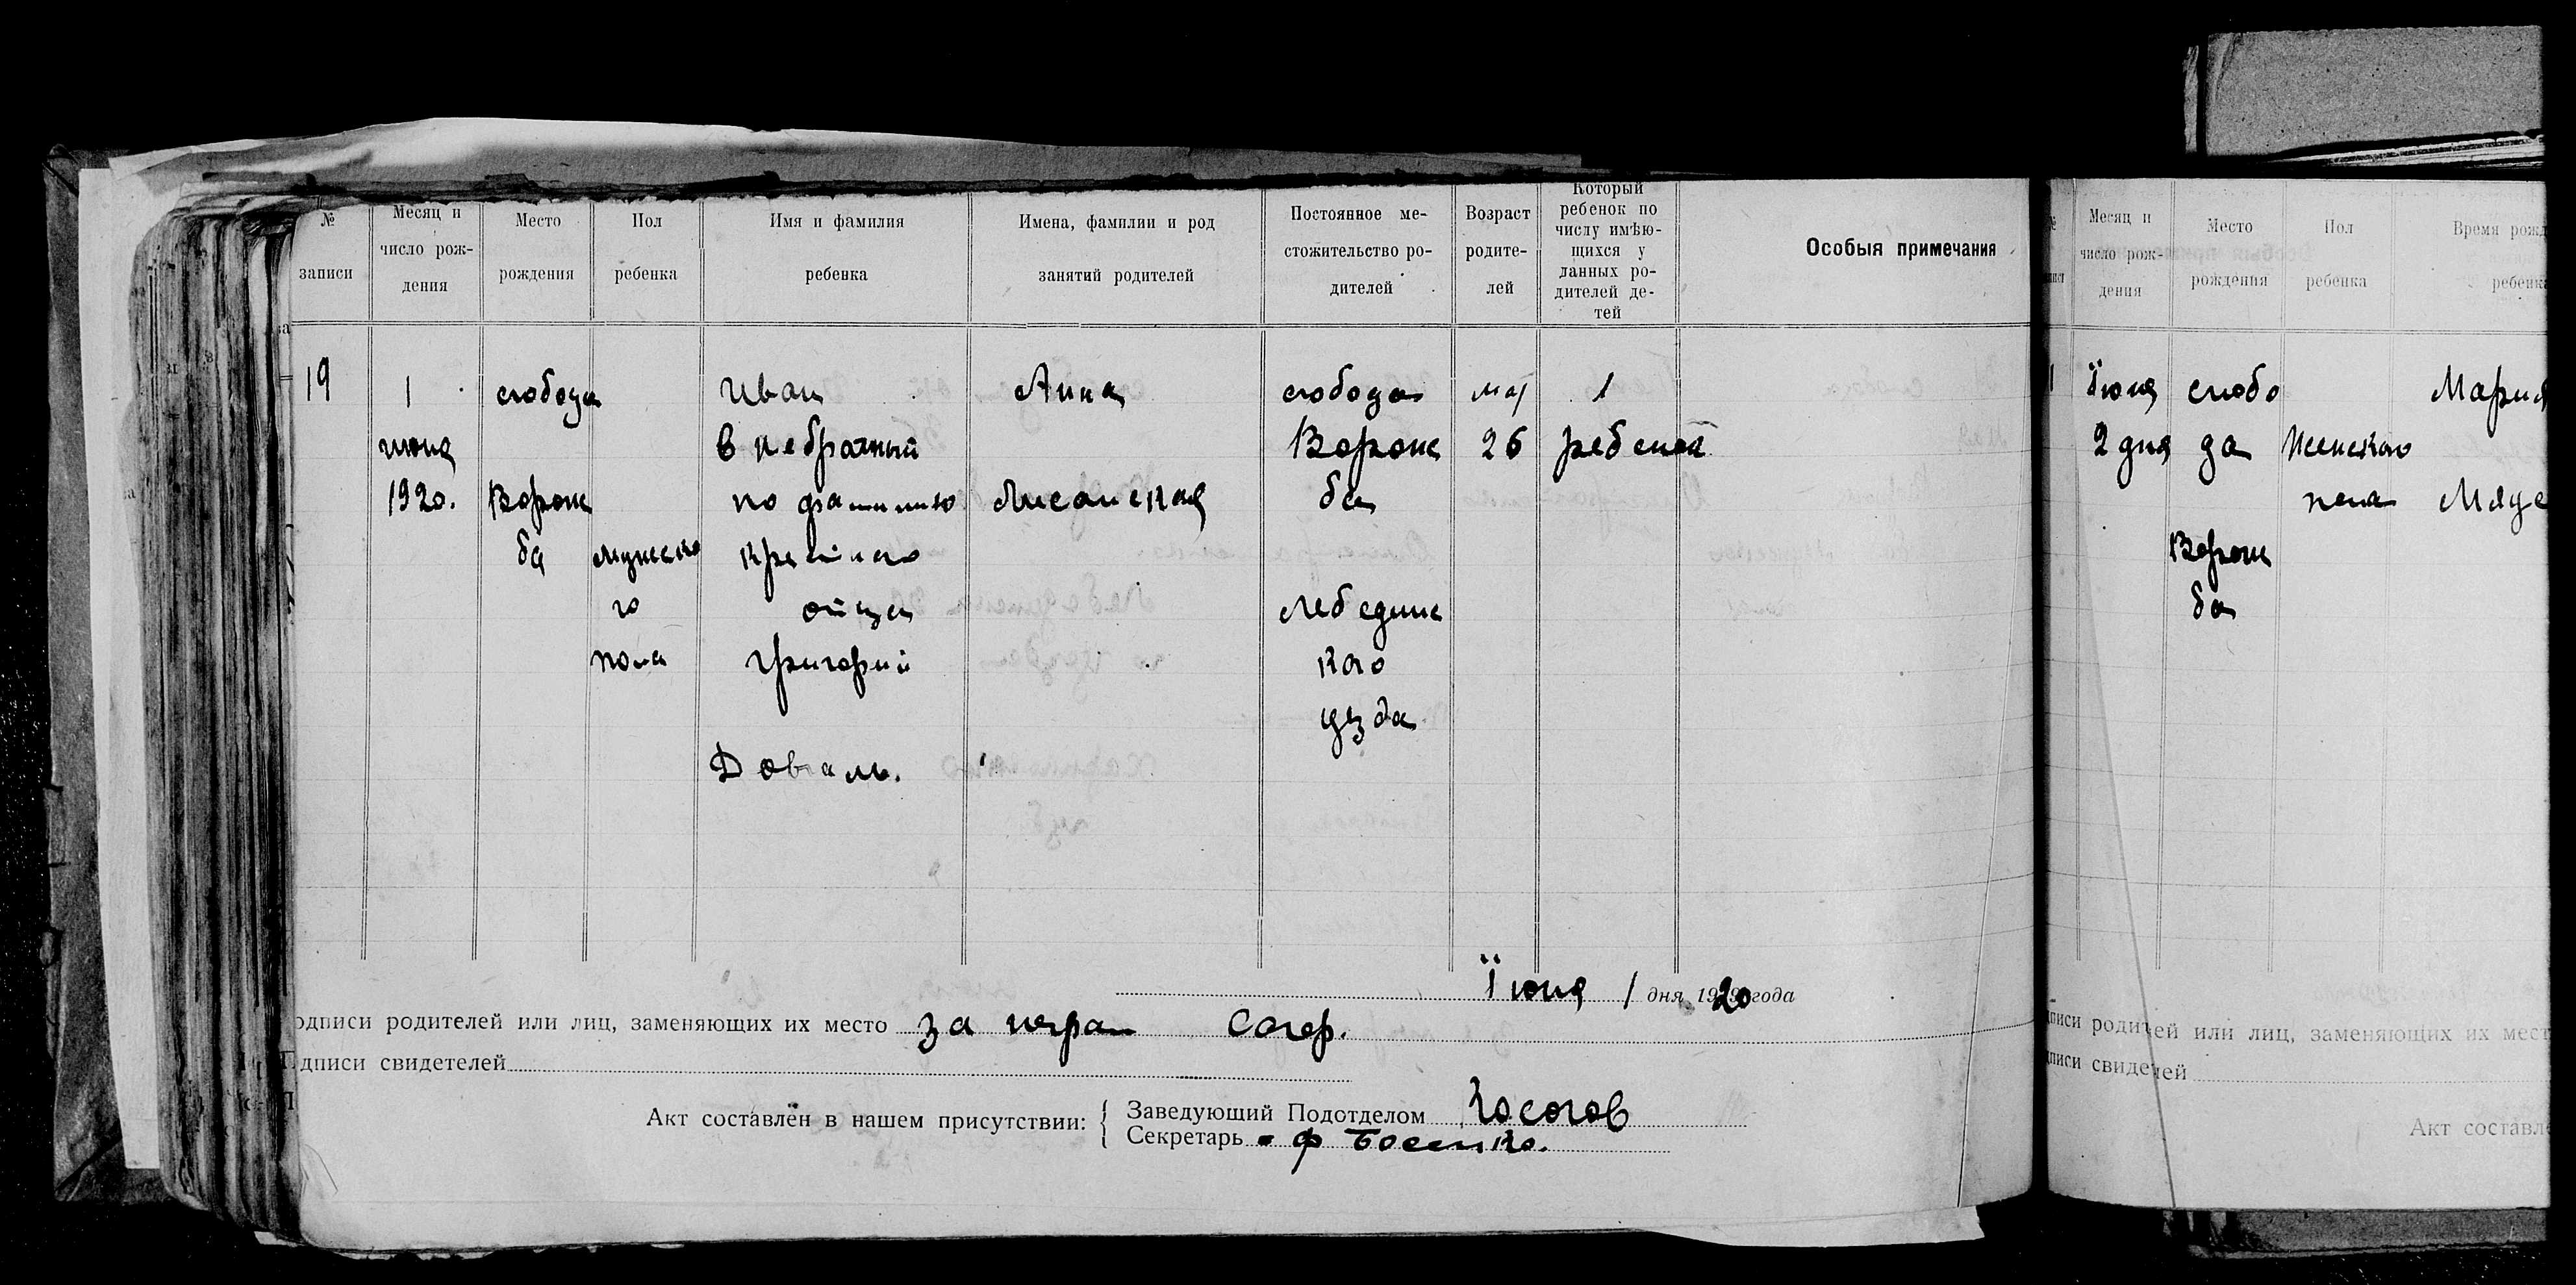 № записи
Месяц и число рож-дения
Место рождения
Пол ребенка
Имя и фамилия ребенка
Имена, фамилии и род занятий родителей
Постоянное ме-стожительство ро-дителей
Возраст родите-лей
Который ребенок по числу имѣю-щихся у данных ро-дителей де-тей
Особыя примечания
19
1
июня
1920.
слобода
Ворож
ба
мужско
го
пола
Иван
внебрачный
по фамилию
крестного
отца
Григорий
Доваль.
Анна
Лисанская
слобода
Ворож
ба
Лебединс
каго
узда
26
1
ребенок
Їюня 1 дня 1920 года
одписи родителей или лиц, заменяющих их место за неграм
дписи свидетелей
Акт составлен в нашем присутствии:
Заведующий Подотделом
Секретарь Ф Босенко.
Месяц и число рож-дения
Место рождения
Пол ребенка
Время рожд
ребенк
Їюня
2 дня
слобо
да
Ворож
ба
Женскаго
пола
Мария
дписи родителей или лиц, заменяющих их мест
дписи свидетелей
Акт составле